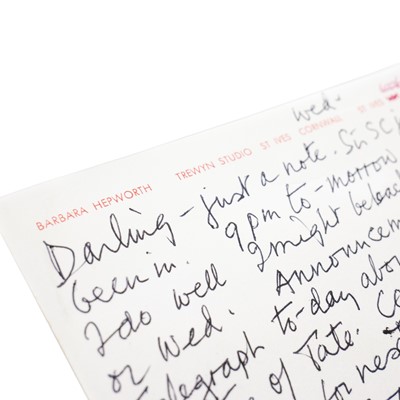 BARBARA HEPWORTH TREWYN STUDIO ST IVES CORNWALL ST IVES
Wed.
Darling - just a note.
been in. 9pm to-morrow
I do well I might
or Wed. Announcem
Telegraph to-day abo
of Tate.
for nes